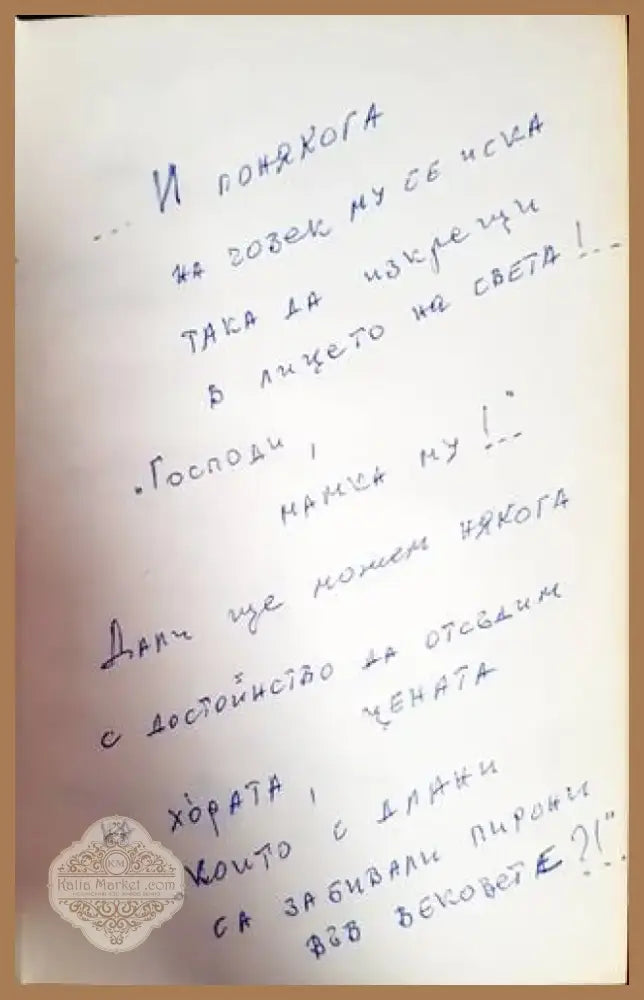 ... И ПОНЯКОГА
НА ЧОВЕК МУ СЕ ИСКА
ТАКА ДА ИЗКРЕЩИ
В ЛИЦЕТО НА СВЕТА!...
„Господи,
МАМКА МУ!..."
Дали ще можем НЯКОГА
С ДОСТОЙНСТВО ДА ОТСЪДИМ
ЦЕНАТА
ХОРАТА,
„КОИТО С ДЛАНИ
СА ЗАБИВАЛИ ПИРОНИ
ВЪВ ВЕКОВЕТЕ?!"..
KM
Kalia Market.com